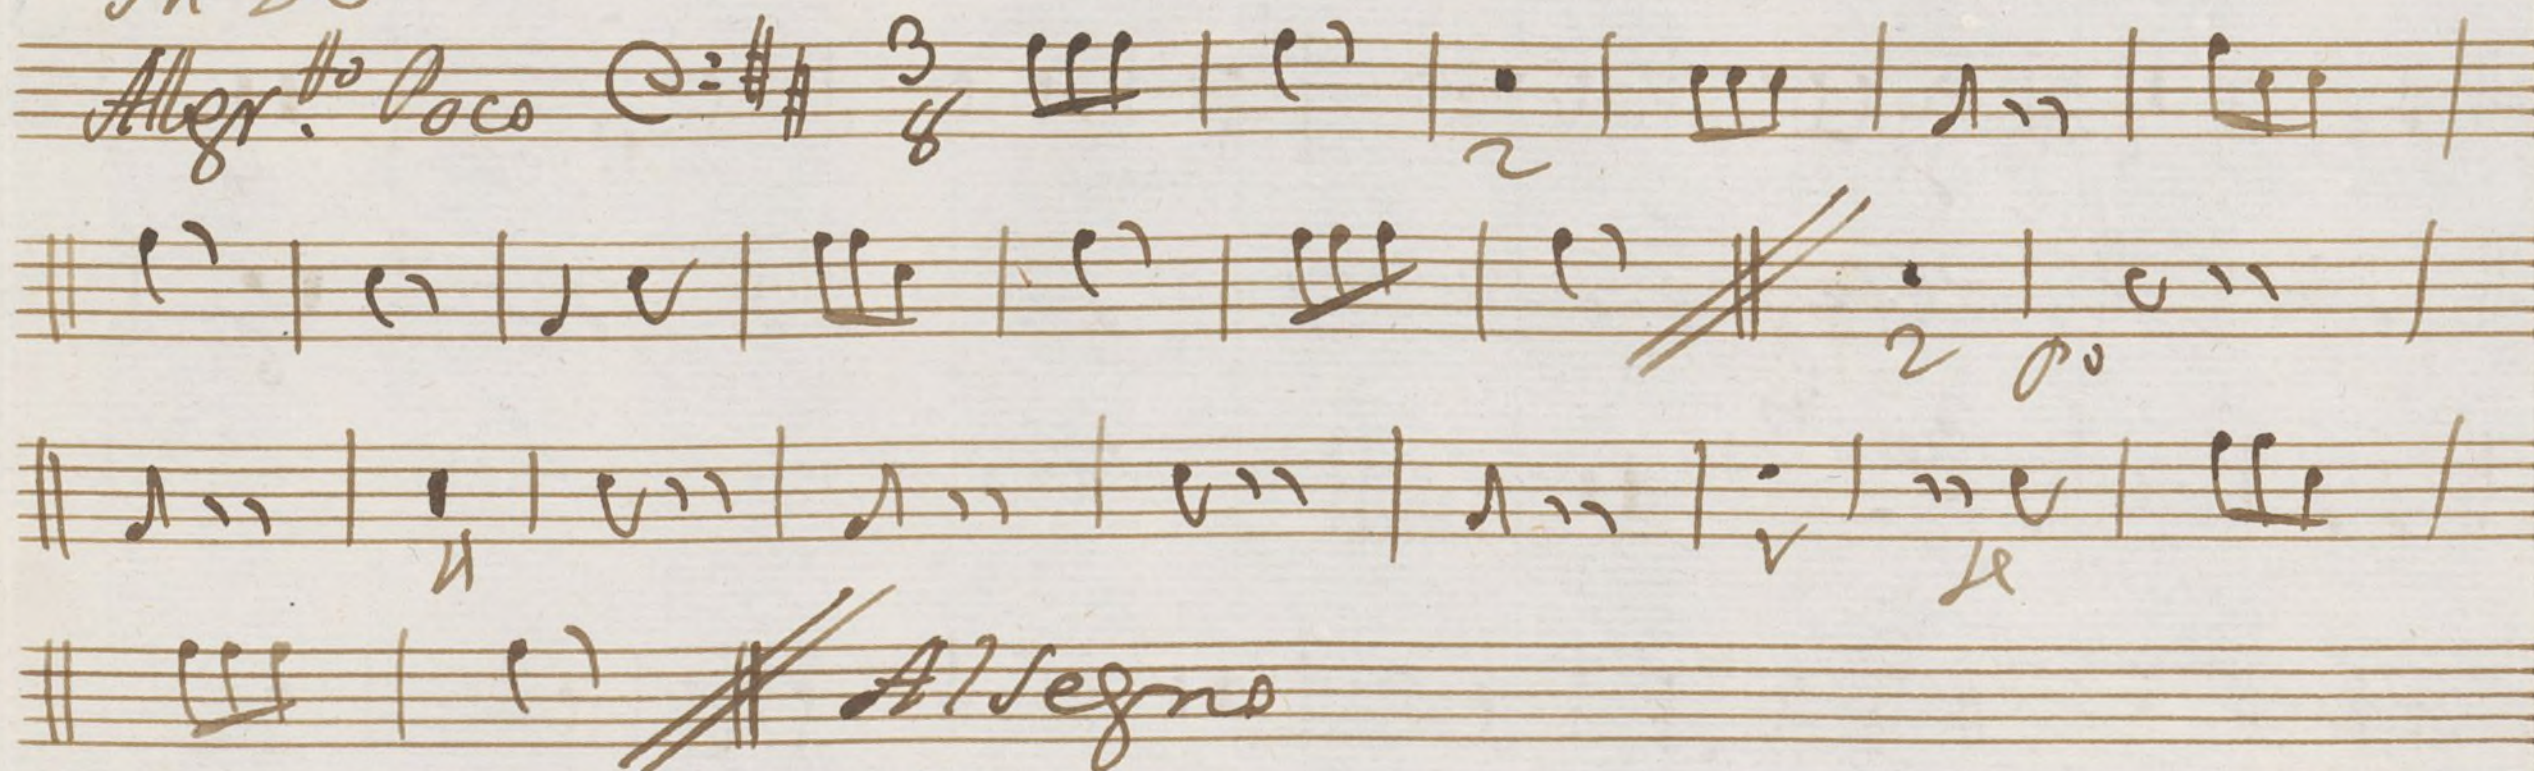 Allegr.tto Poco 3 8
2
2 po
4 v fe
Al Segno